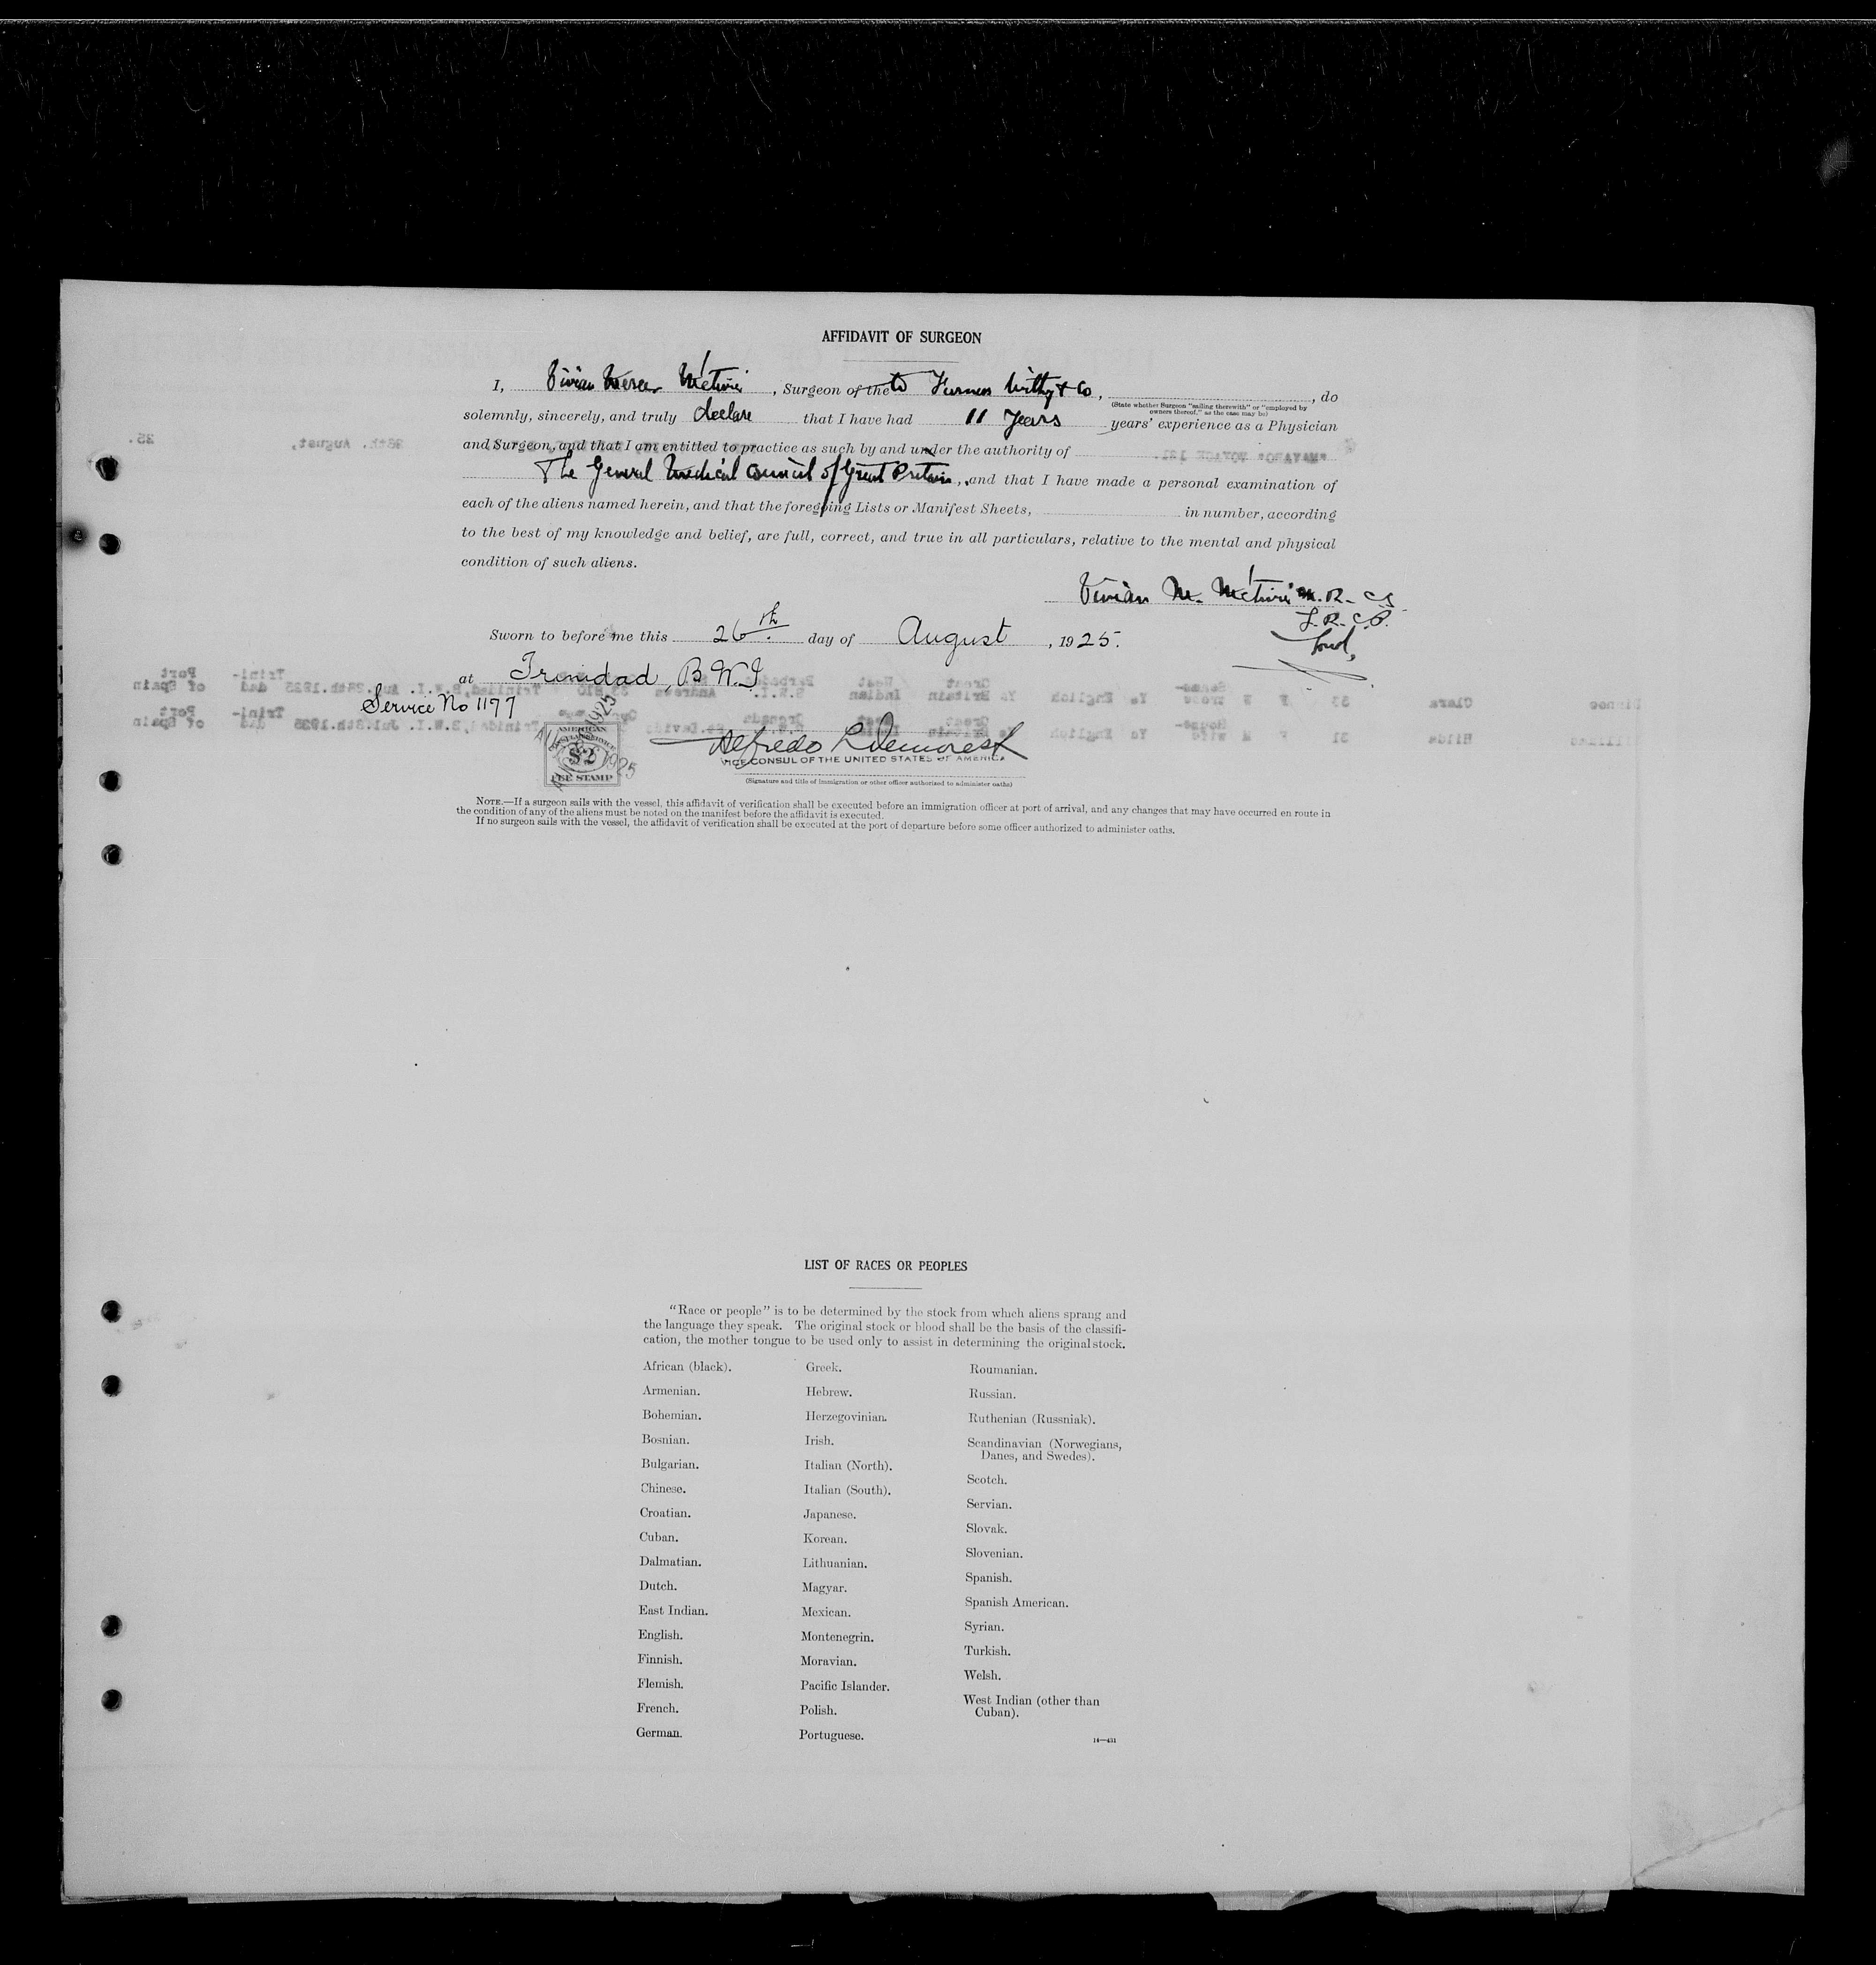 AFFIDAVIT OF SURGEON
I, Vivian Mercer , Surgeon of the to Furness Withy & Co, , do
(State whether Surgeon "sailing therewith" or "employed by
owners thereof," as the case may be)
solemnly, sincerely, and truly declare that I have had 11 Years years' experience as a Physician
and Surgeon, and that I am entitled to practice as such by and under the authority of
The General Medical Council of Great Britain, and that I have made a personal examination of
each of the aliens named herein, and that the foregoing Lists or Manifest Sheets, in number, according
to the best of my knowledge and belief, are full, correct, and true in all particulars, relative to the mental and physical
condition of such aliens.
Vivian M. M.R.CS
L.R.C.P.
Lond,
Sworn to before me this 26th day of August , 1925.
at Trinidad, B.W.I
Service No 1177
AMERICAN
CONSULAR SERVICE
$2
FEE STAMP
Alfredo L Demorest
VICE CONSUL OF THE UNITED STATES OF AMERICA
(Signature and title of immigration or other officer authorized to administer oaths)
NOTE.—If a surgeon sails with the vessel, this affidavit of verification shall be executed before an immigration officer at port of arrival, and any changes that may have occurred en route in
the condition of any of the aliens must be noted on the manifest before the affidavit is executed.
If no surgeon sails with the vessel, the affidavit of verification shall be executed at the port of departure before some officer authorized to administer oaths.
LIST OF RACES OR PEOPLES
"Race or people" is to be determined by the stock from which aliens sprang and
the language they speak. The original stock or blood shall be the basis of the classifi-
cation, the mother tongue to be used only to assist in determining the original stock.
African (black).
Armenian.
Bohemian.
Bosnian.
Bulgarian.
Chinese.
Croatian.
Cuban.
Dalmatian.
Dutch.
East Indian.
English.
Finnish.
Flemish.
French.
German.
Greek.
Hebrew.
Herzegovinian.
Irish.
Italian (North).
Italian (South).
Japanese.
Korean.
Lithuanian.
Magyar.
Mexican.
Montenegrin.
Moravian.
Pacific Islander.
Polish.
Portuguese.
Roumanian.
Russian.
Ruthenian (Russniak).
Scandinavian (Norwegians,
Danes, and Swedes).
Scotch.
Servian.
Slovak.
Slovenian.
Spanish.
Spanish American.
Syrian.
Turkish.
Welsh.
West Indian (other than
Cuban).
14—431